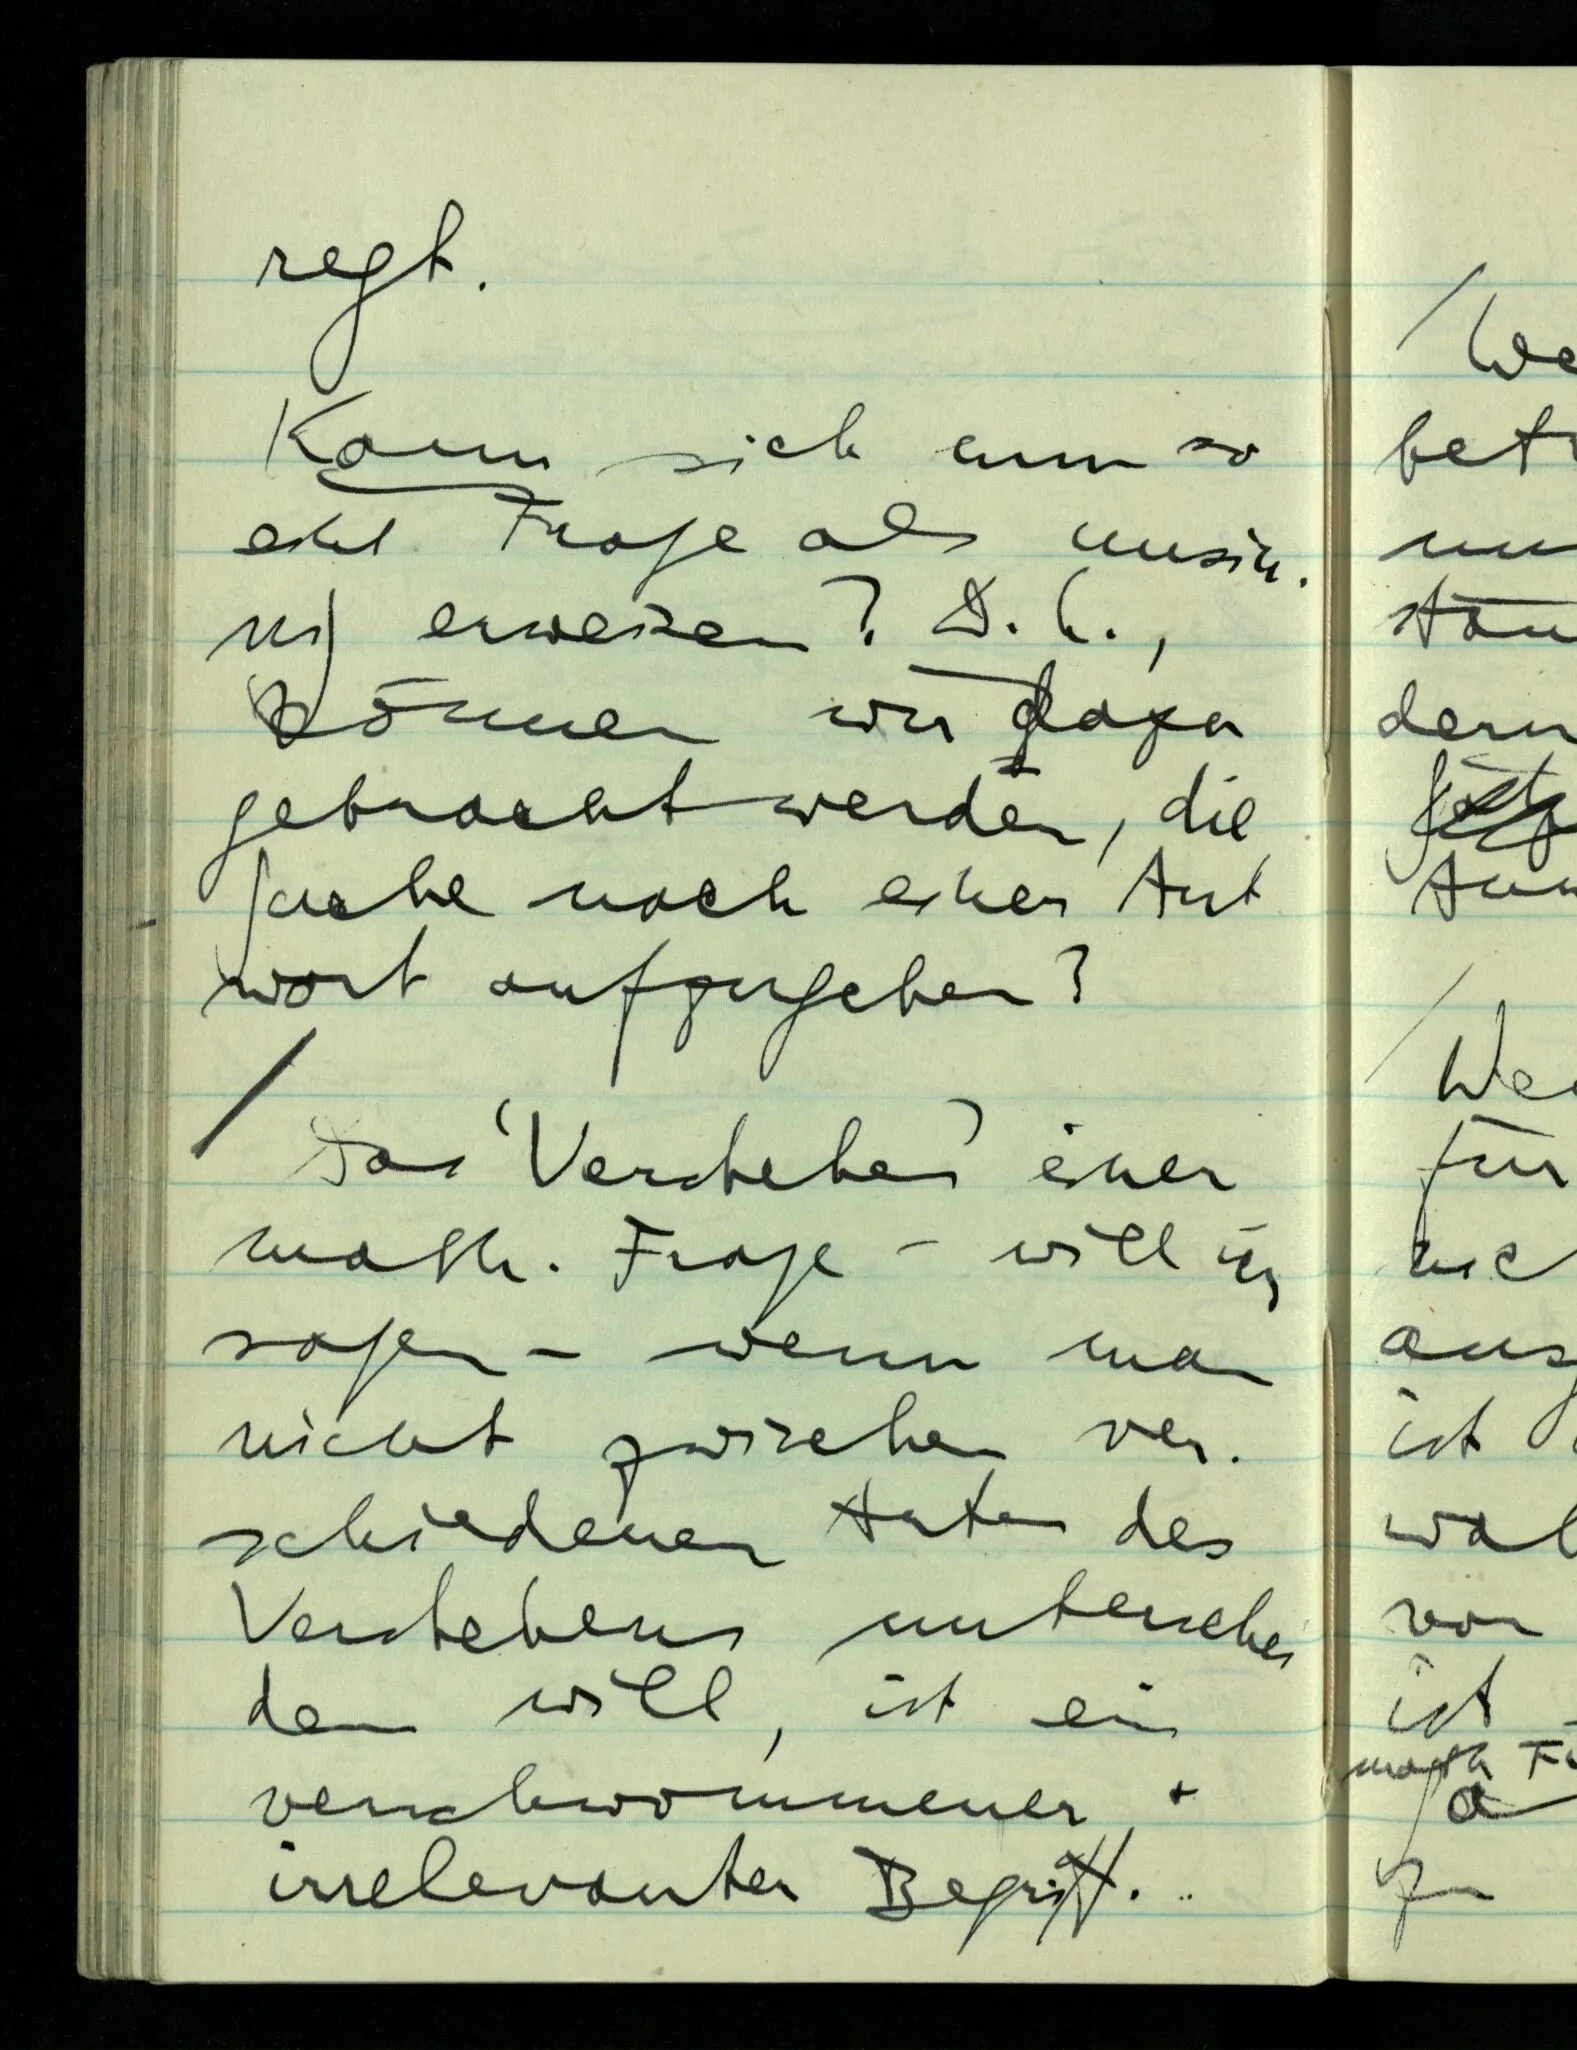 regt.
Kann sich nun so
eine Frage als unsin-
nig erweisen? D.h.,
können wir dazu
gebracht werden, die
Suche nach einer Ant
wort aufzugeben?
/
Das 'Verstehen' einer
math. Frage – will ich
sagen – wenn man
nicht zwischen ver-
schiedenen Arten des
Verstehens unterschei
den will, ist ein
verschwommener +
irrelevanter Begriff. ..
/
bet
dern
/
für
aus
ist
von
ist
math